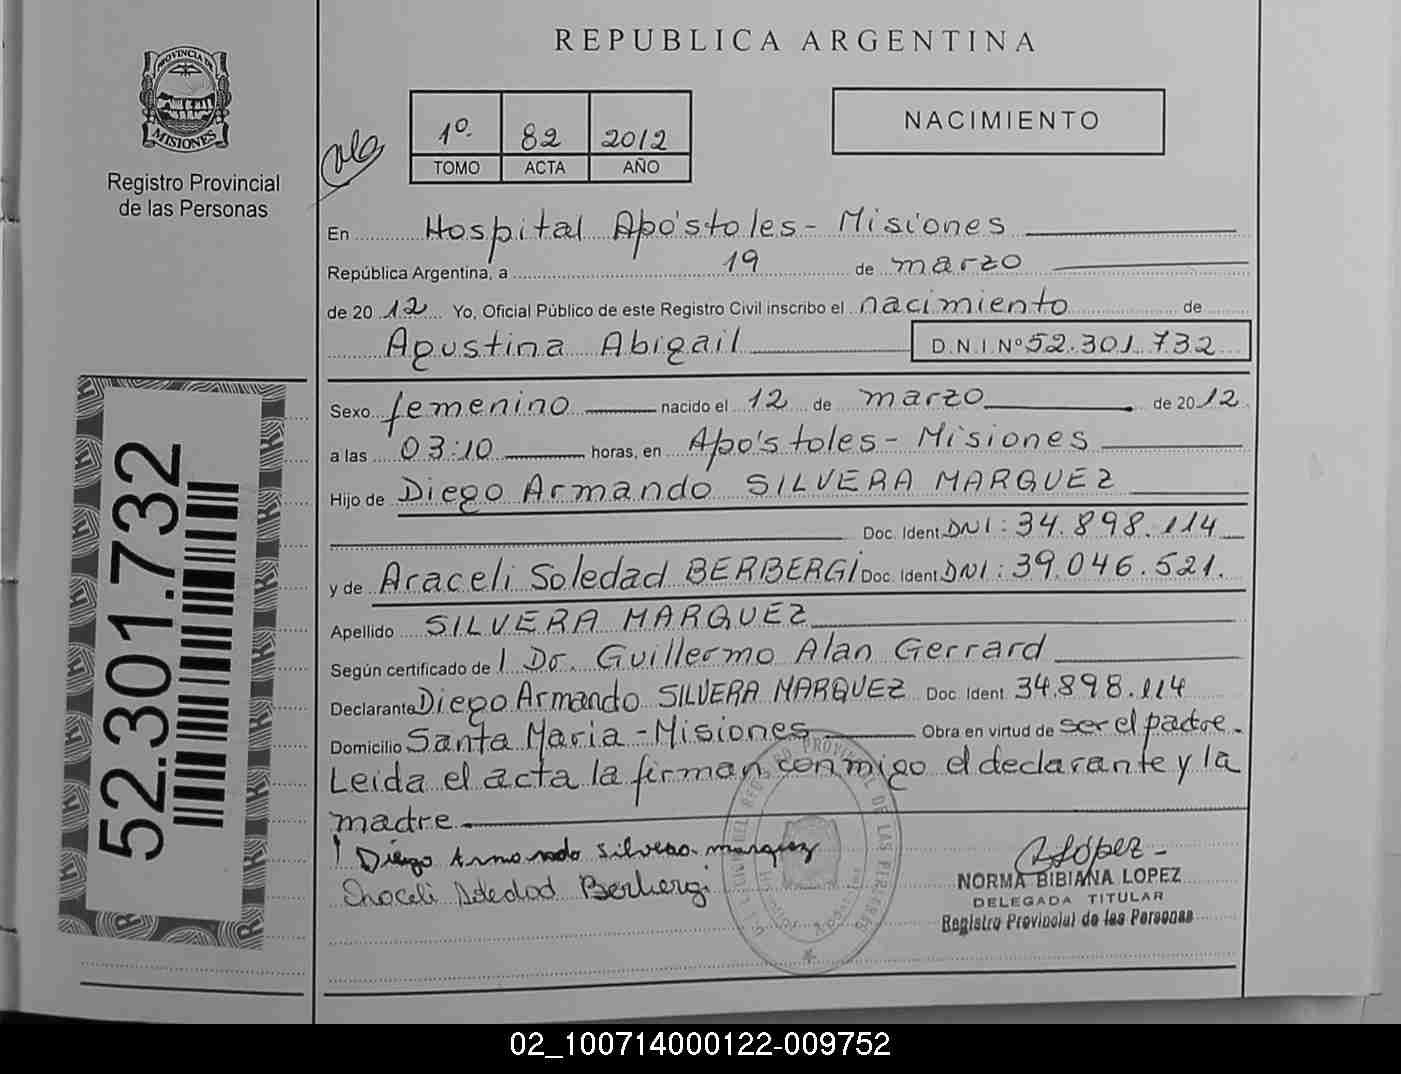 REPUBLICA ARGENTINA
PROVINCIA DE
MISIONES
Registro Provincial
de las Personas
1º. 82 2012
TOMO ACTA AÑO
NACIMIENTO
En Hospital Apóstoles - Misiones
República Argentina, a 19 de marzo
de 20 12 Yo, Oficial Público de este Registro Civil inscribo el nacimiento de
Agustina Abigail D.N.I. Nº 52.301.732
Sexo femenino nacido el 12 de marzo de 20 12
a las 03:10 horas, en Apóstoles - Misiones
Hijo de Diego Armando SILVERA MARQUEZ
Doc. Ident. DNI: 34.898.114
y de Araceli Soledad BERBERGI Doc. Ident. DNI: 39.046.521.
Apellido SILVERA MARQUEZ
Según certificado de l Dr. Guillermo Alan Gerrard
Declarante Diego Armando SILVERA MARQUEZ Doc. Ident. 34.898.114
Domicilio Santa Maria - Misiones Obra en virtud de ser el padre.
Leida el acta la firman conmigo el declarante y la
madre.
Diego Armando Silvera marquez
Araceli Soledad Berbergi
López
NORMA BIBIANA LOPEZ
DELEGADA TITULAR
Registro Provincial de las Personas
52.301.732
02_100714000122-009752